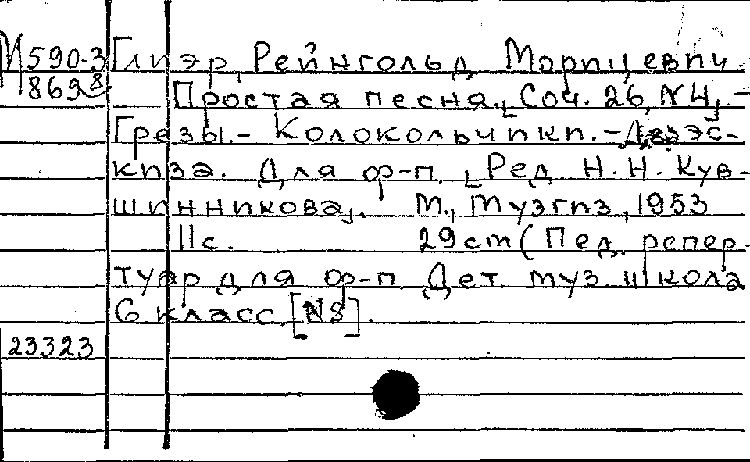 М590-3 Глиэр, Рейнгольд Морицевич.
18628 Простая песня. [Соч. 26, №4] -
Грезы. - Колокольчики. - Два эс-
киза. Для ф-п. [Ред. Н. Н. Кув-
шинникова]. М., Музгиз, 1953
11с. 29см (Пед. репер-
туар для ф-п. Дет. муз. школа
6 класс. [№8].
23323